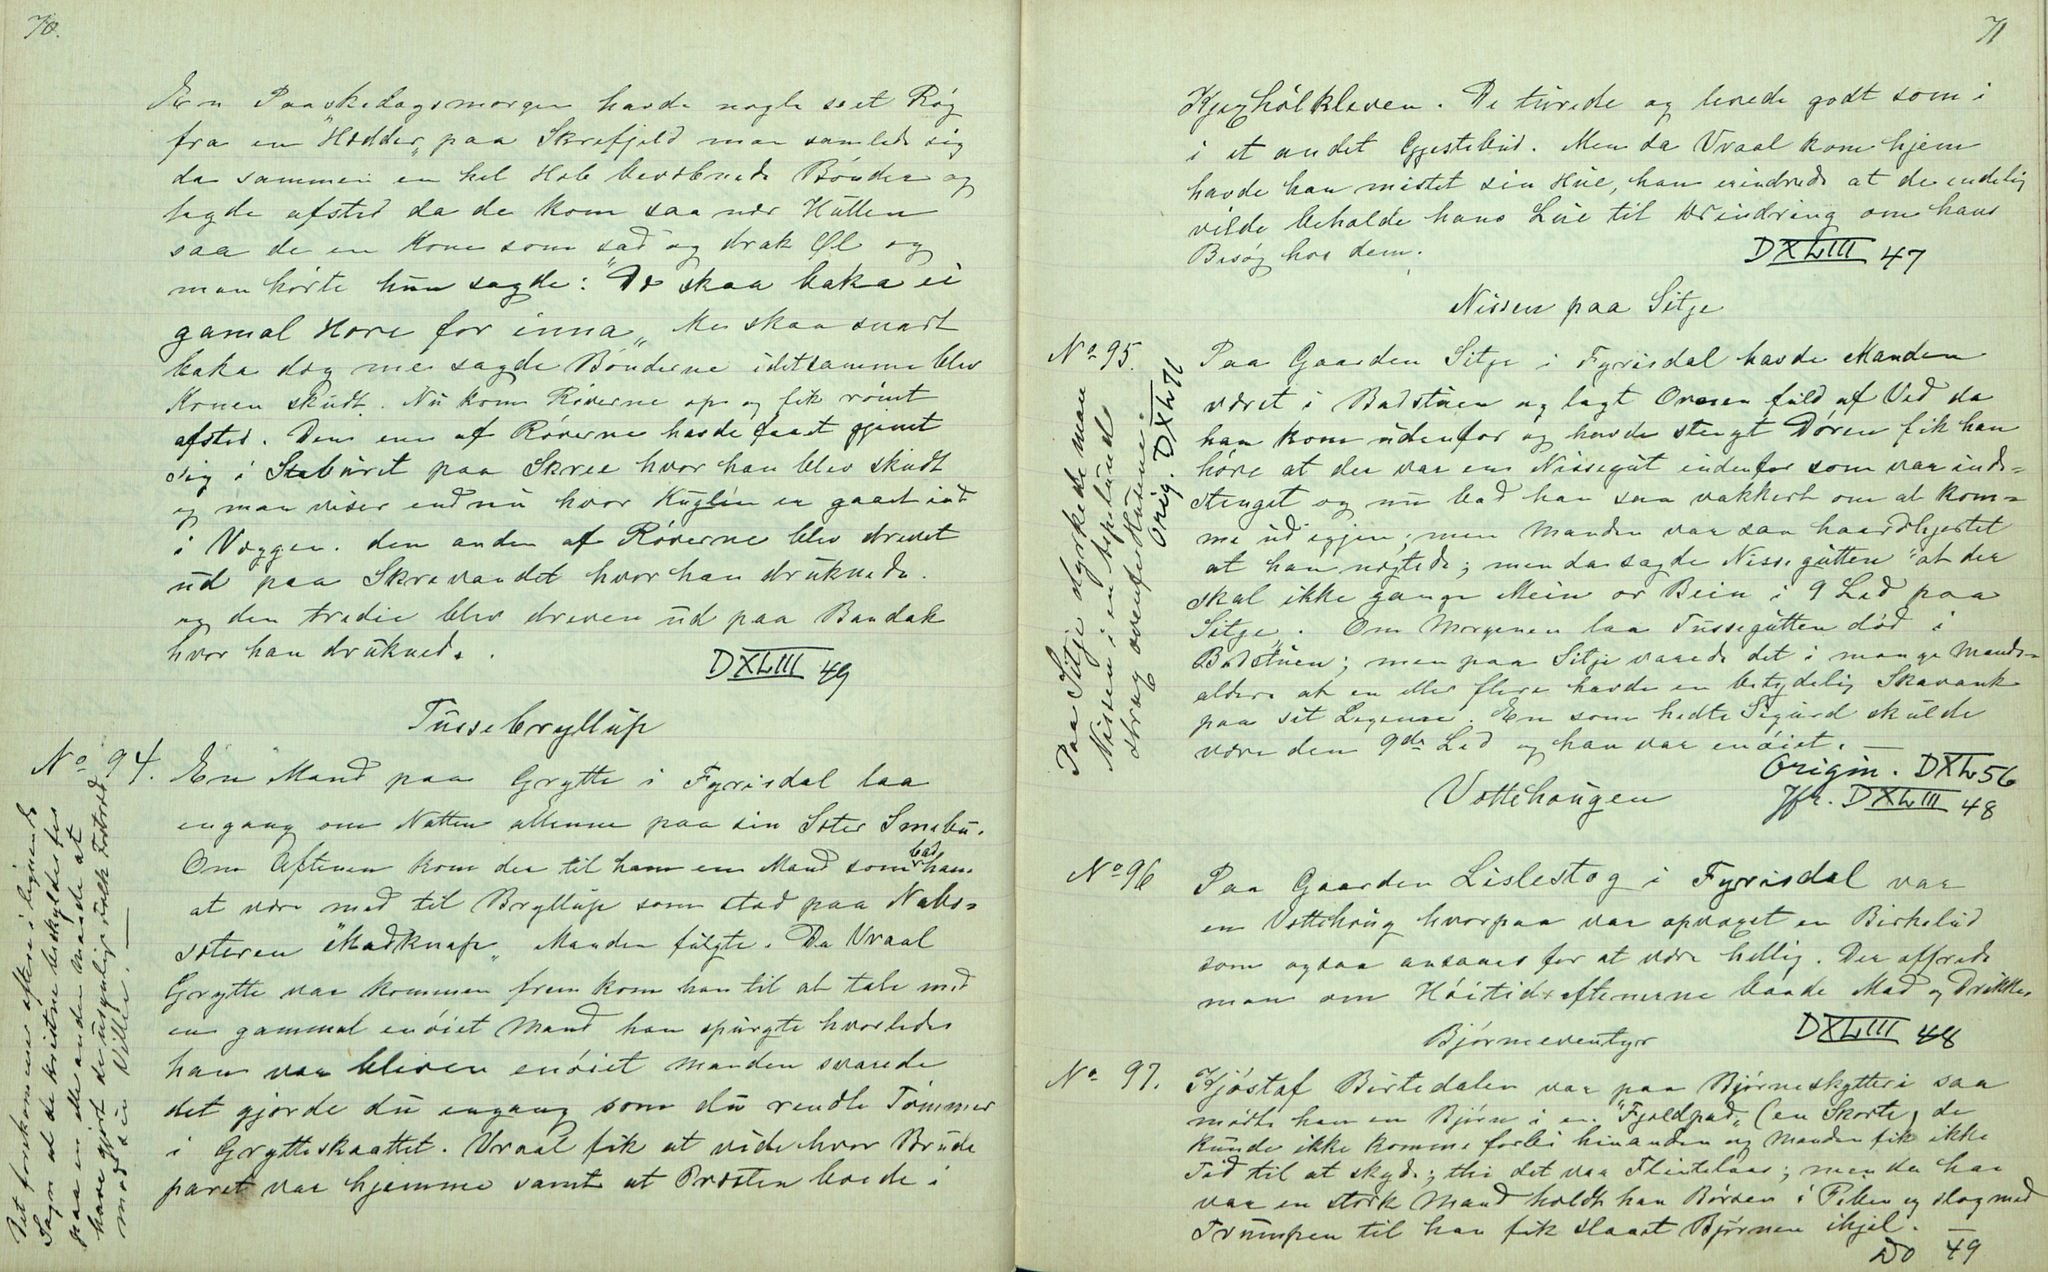 70.
En Paaskedagsmorgen havde nogle seet Røg
fra en "Hedder" paa Skrefjeld man samlede sig
da sammen en hel Hob bevæbnede Bønder og
lagde afsted da de kom saa nær Hütten
saa de en Kone som sad og drak Øl og
man hørte hun sagde: "De skaa baka ei
gamal Hore for inna" Me skaa snart
baka dog me sagde Bønderne idetsamme blev
Konen skudt. Nu kom Røverne op og fik rømt
afsted. Den ene af Røverne havde faaet gjemt
sig i Stabüret paa Skree hvor han blev skudt
og man viser endnu hvor Kuglen er gaaet ind
i Væggen. den anden af Røverne blev drevet
ud paa Skrevandet hvor han druknede.
og den tredie blev dreven ud paa Bandak
hvor han druknede.
DXLIII 49
Tussebryllup
No 94.
En Mand paa Grytte i Fyrisdal laa
engang om Natten allenne paa sin Seter Smebu.
Om Aftenen kom der til ham en Mand som bad ham
at være med til Bryllup som stod paa Nabo-
seteren "Madknap" Manden fulgte. Da Vraal
Grytte var kommen frem kom han til at tale med
en gammal enøiet Mand han spurgte hvorledes
han var bleven enøiet manden svarede
det gjorde du engang som du rendte Tømmer
i Grytteskaattet. Vraal fik at vide hvor Brude
paret var hjemme samt at Præsten boede i
Det forekommer oftere i lignende
Sagn at de kristne beskyldes for
paa en eller anden Maade at
have gjort de usynlige Folk Fortræd
mod sin Villie. —
71
Kjexhølkleven. De turede og levede godt som i
i et andet Gjestebud. Men da Vraal kom hjem
havde han mistet sin Hue, han erindrede at de endelig
vilde beholde hans Lue til Erindring om hans
Besøg hos dem.
DXLIII 47
Nissen paa Sitje
No 95.
Paa Gaarden Sitje i Fyrisdal havde Manden
været i Badstuen og lagt Ovnen fuld af Ved da
han kom udenfor og havde stengt Døren fik han
høre at der var en Nissegut indenfor som var inde-
stenget og nu bad han saa vakkert om at kom-
me ud igjen; men Manden var saa haardhjertet
at han nægtede; men da sagde Nissegutten "at der
skal ikke gange Mein or Bein i 9 Led paa
Sitje". Om Morgenen laa Tussegutten død i
Badstuen; men paa Sitje varede det i mange Mands-
aldere at en eller flere havde en betydelig Skavank
paa sit Legeme. En som hedte Sigurd skulde
være den 9de Led og han var enøiet. —
Origin. DXL 56
Jfr. DXLIII 48
Paa Sitje dyrkede man
Nissen i en Aspelund
strax ovenfor Husene:
Orig. DXLII
Vettehougen
No 96
Paa Gaarden Lislestog i Fyrisdal var
en Vettehoug hvorpaa var opvoxet en Birkelund
som ogsaa ansaaes for at være hellig. Der offrede
man om Høitidsaftenerne baade Mad og Drikke.
DXLIII 48
Bjørneeventyr
No 97.
Kjøstaf Birtedalen var paa Bjørneskytteri saa
mødte han en Bjørn i en "Fjeldpad" (en Skorte) de
kunde ikke komme forbi hinanden og Manden fik ikke
Tid til at skyde; thi det var Flintelaas; men da han
var en stærk Mand holdt han Børsen i Piben og slog med
Trumpen til han fik slaaet Bjørnen ihjel. —
Do 49